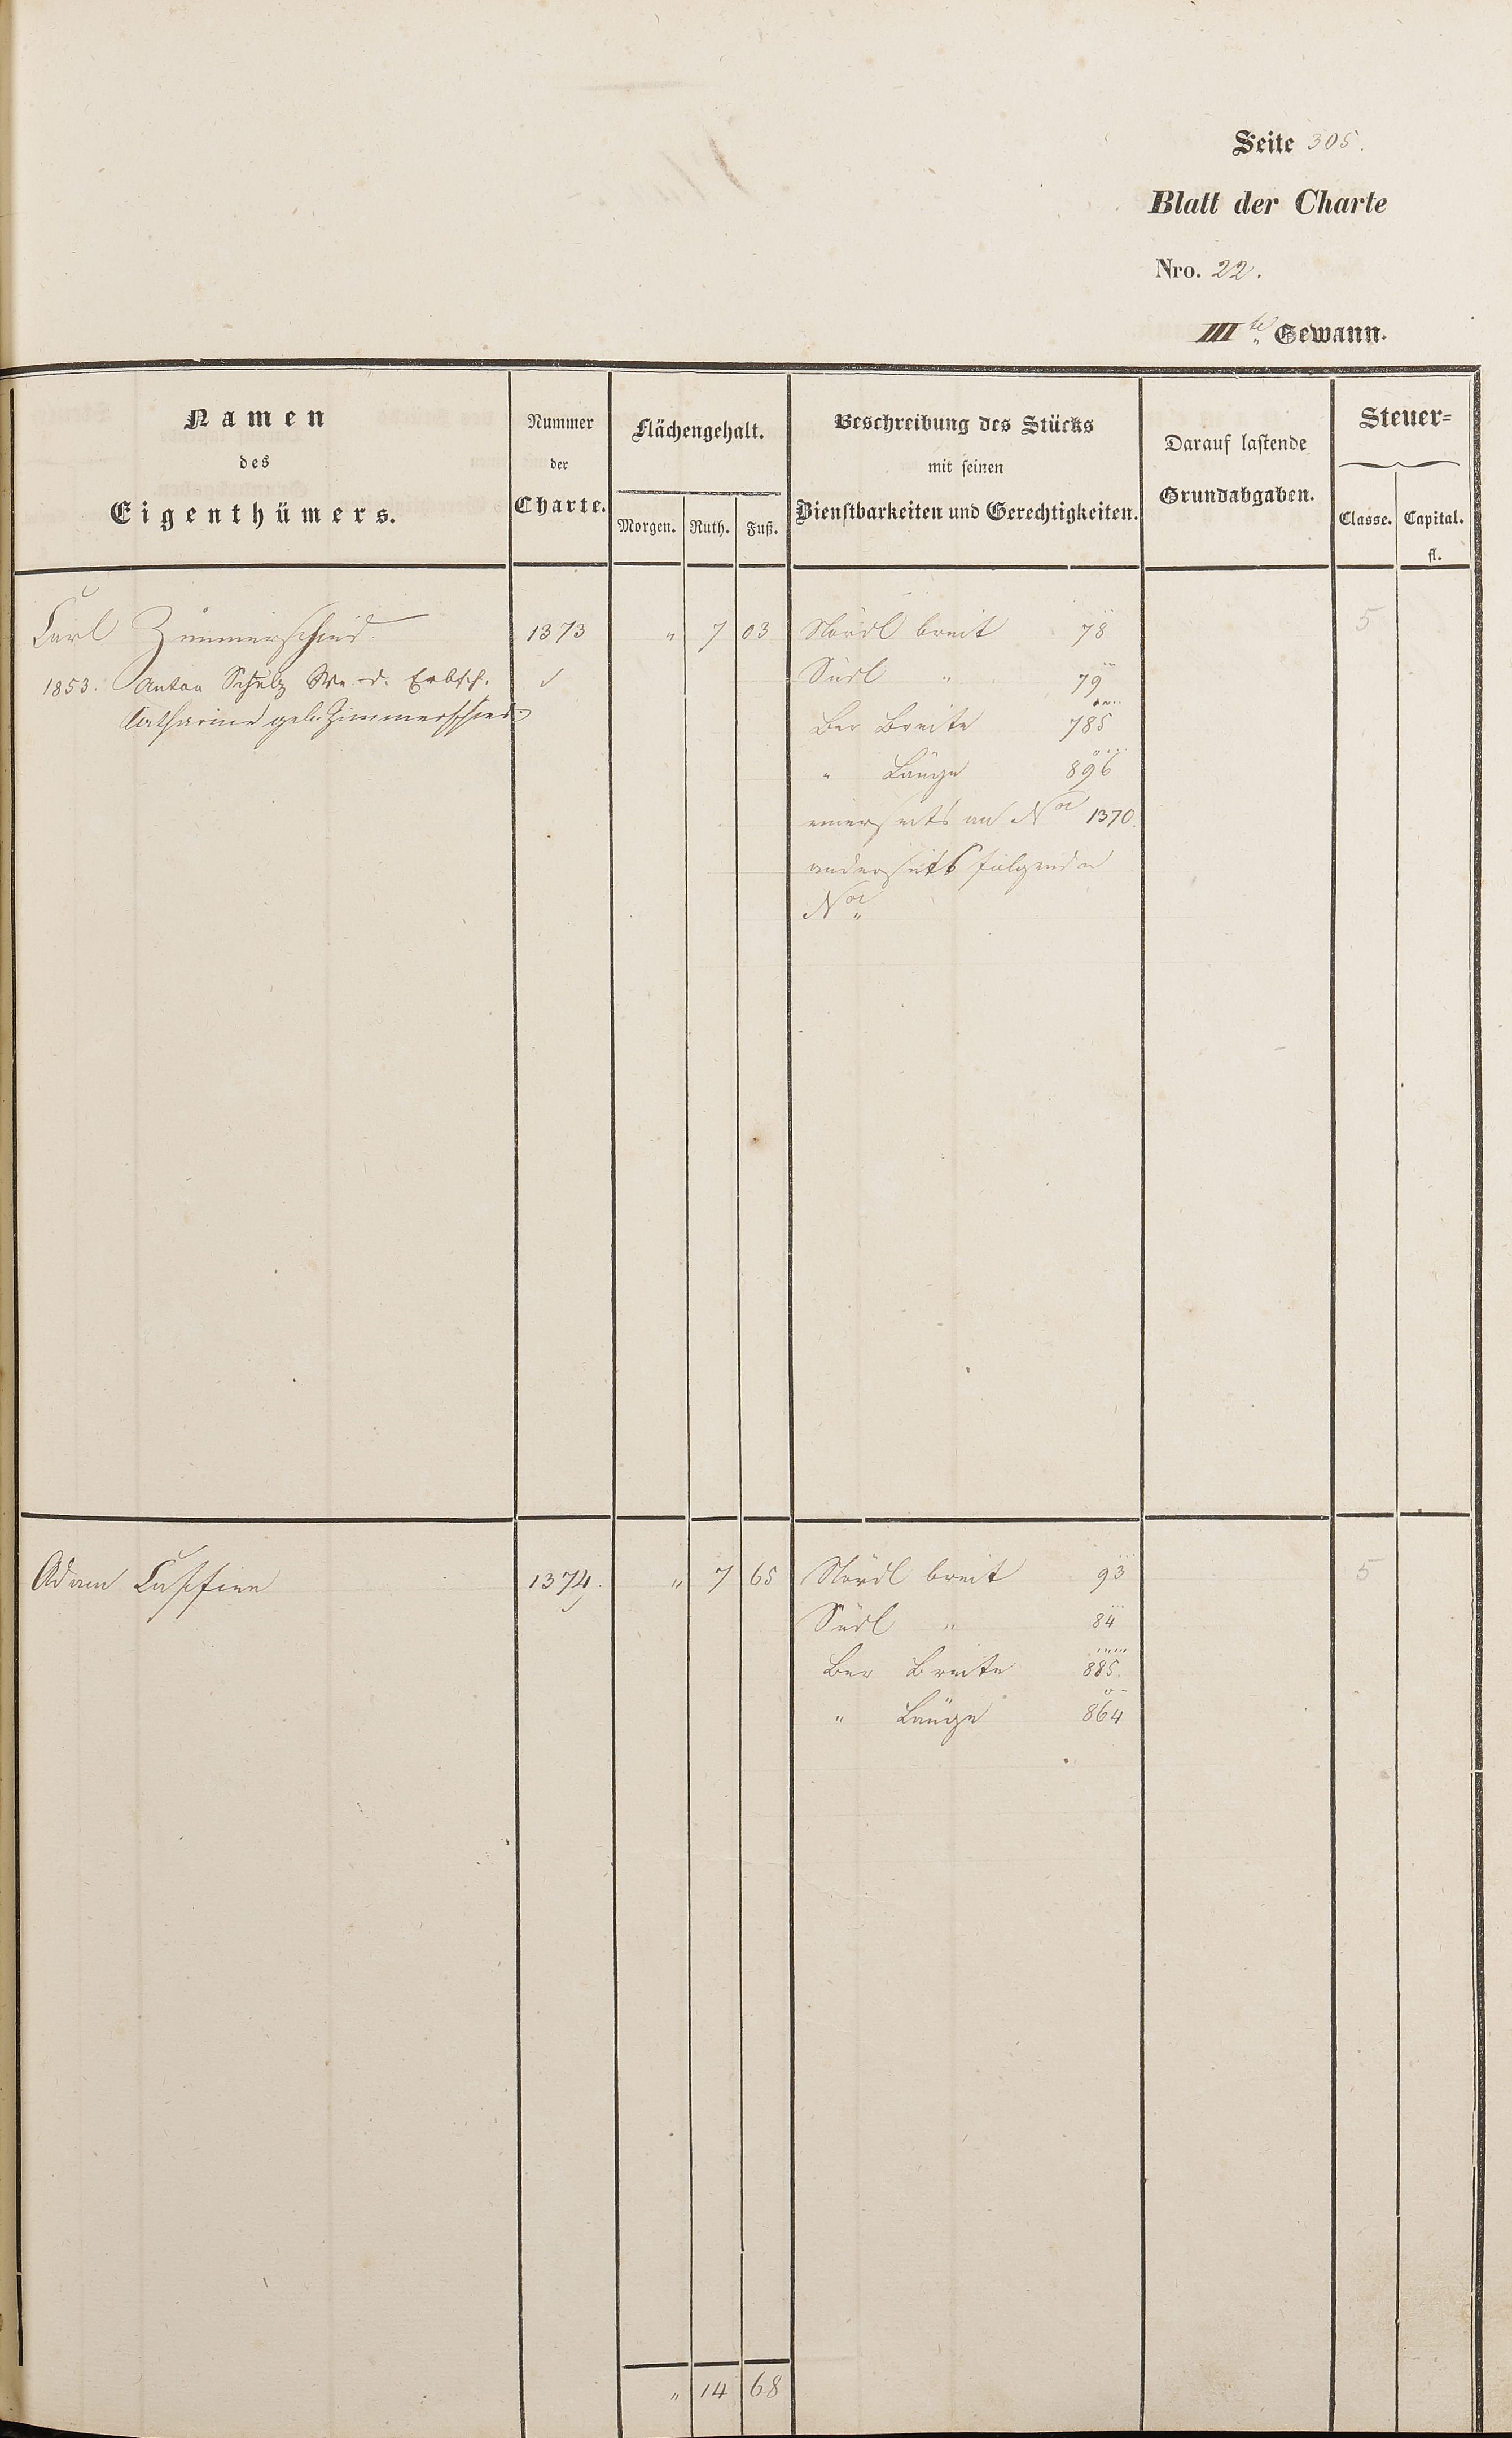 Seite 305.
Blatt der Charte
Nro. 22.
III te Gewann.
Namen
des
Eigenthümers.
Nummer
der
Charte.
Flächengehalt.
Morgen. Ruth. Fuß.
Beschreibung des Stücks
mit seinen
Dienstbarkeiten und Gerechtigkeiten.
Darauf lastende
Grundabgaben.
Steuer=
Classe. Capital.
fl.
Carl Zimmerschied 1373 " 7 03 Nördl breit 78 5
1853. Anton Schulz We. d. Erbsch. Südl " 79
Catharina geb. Zimmerschied
Ber Breite 785
" Länge 896
einerseits an No 1370.
anderseits folgende
No
Adam 1374. " 7 65 Nördl breit 93 5
Südl " 84
Ber Breite 885.
" Länge 864
" 14 68